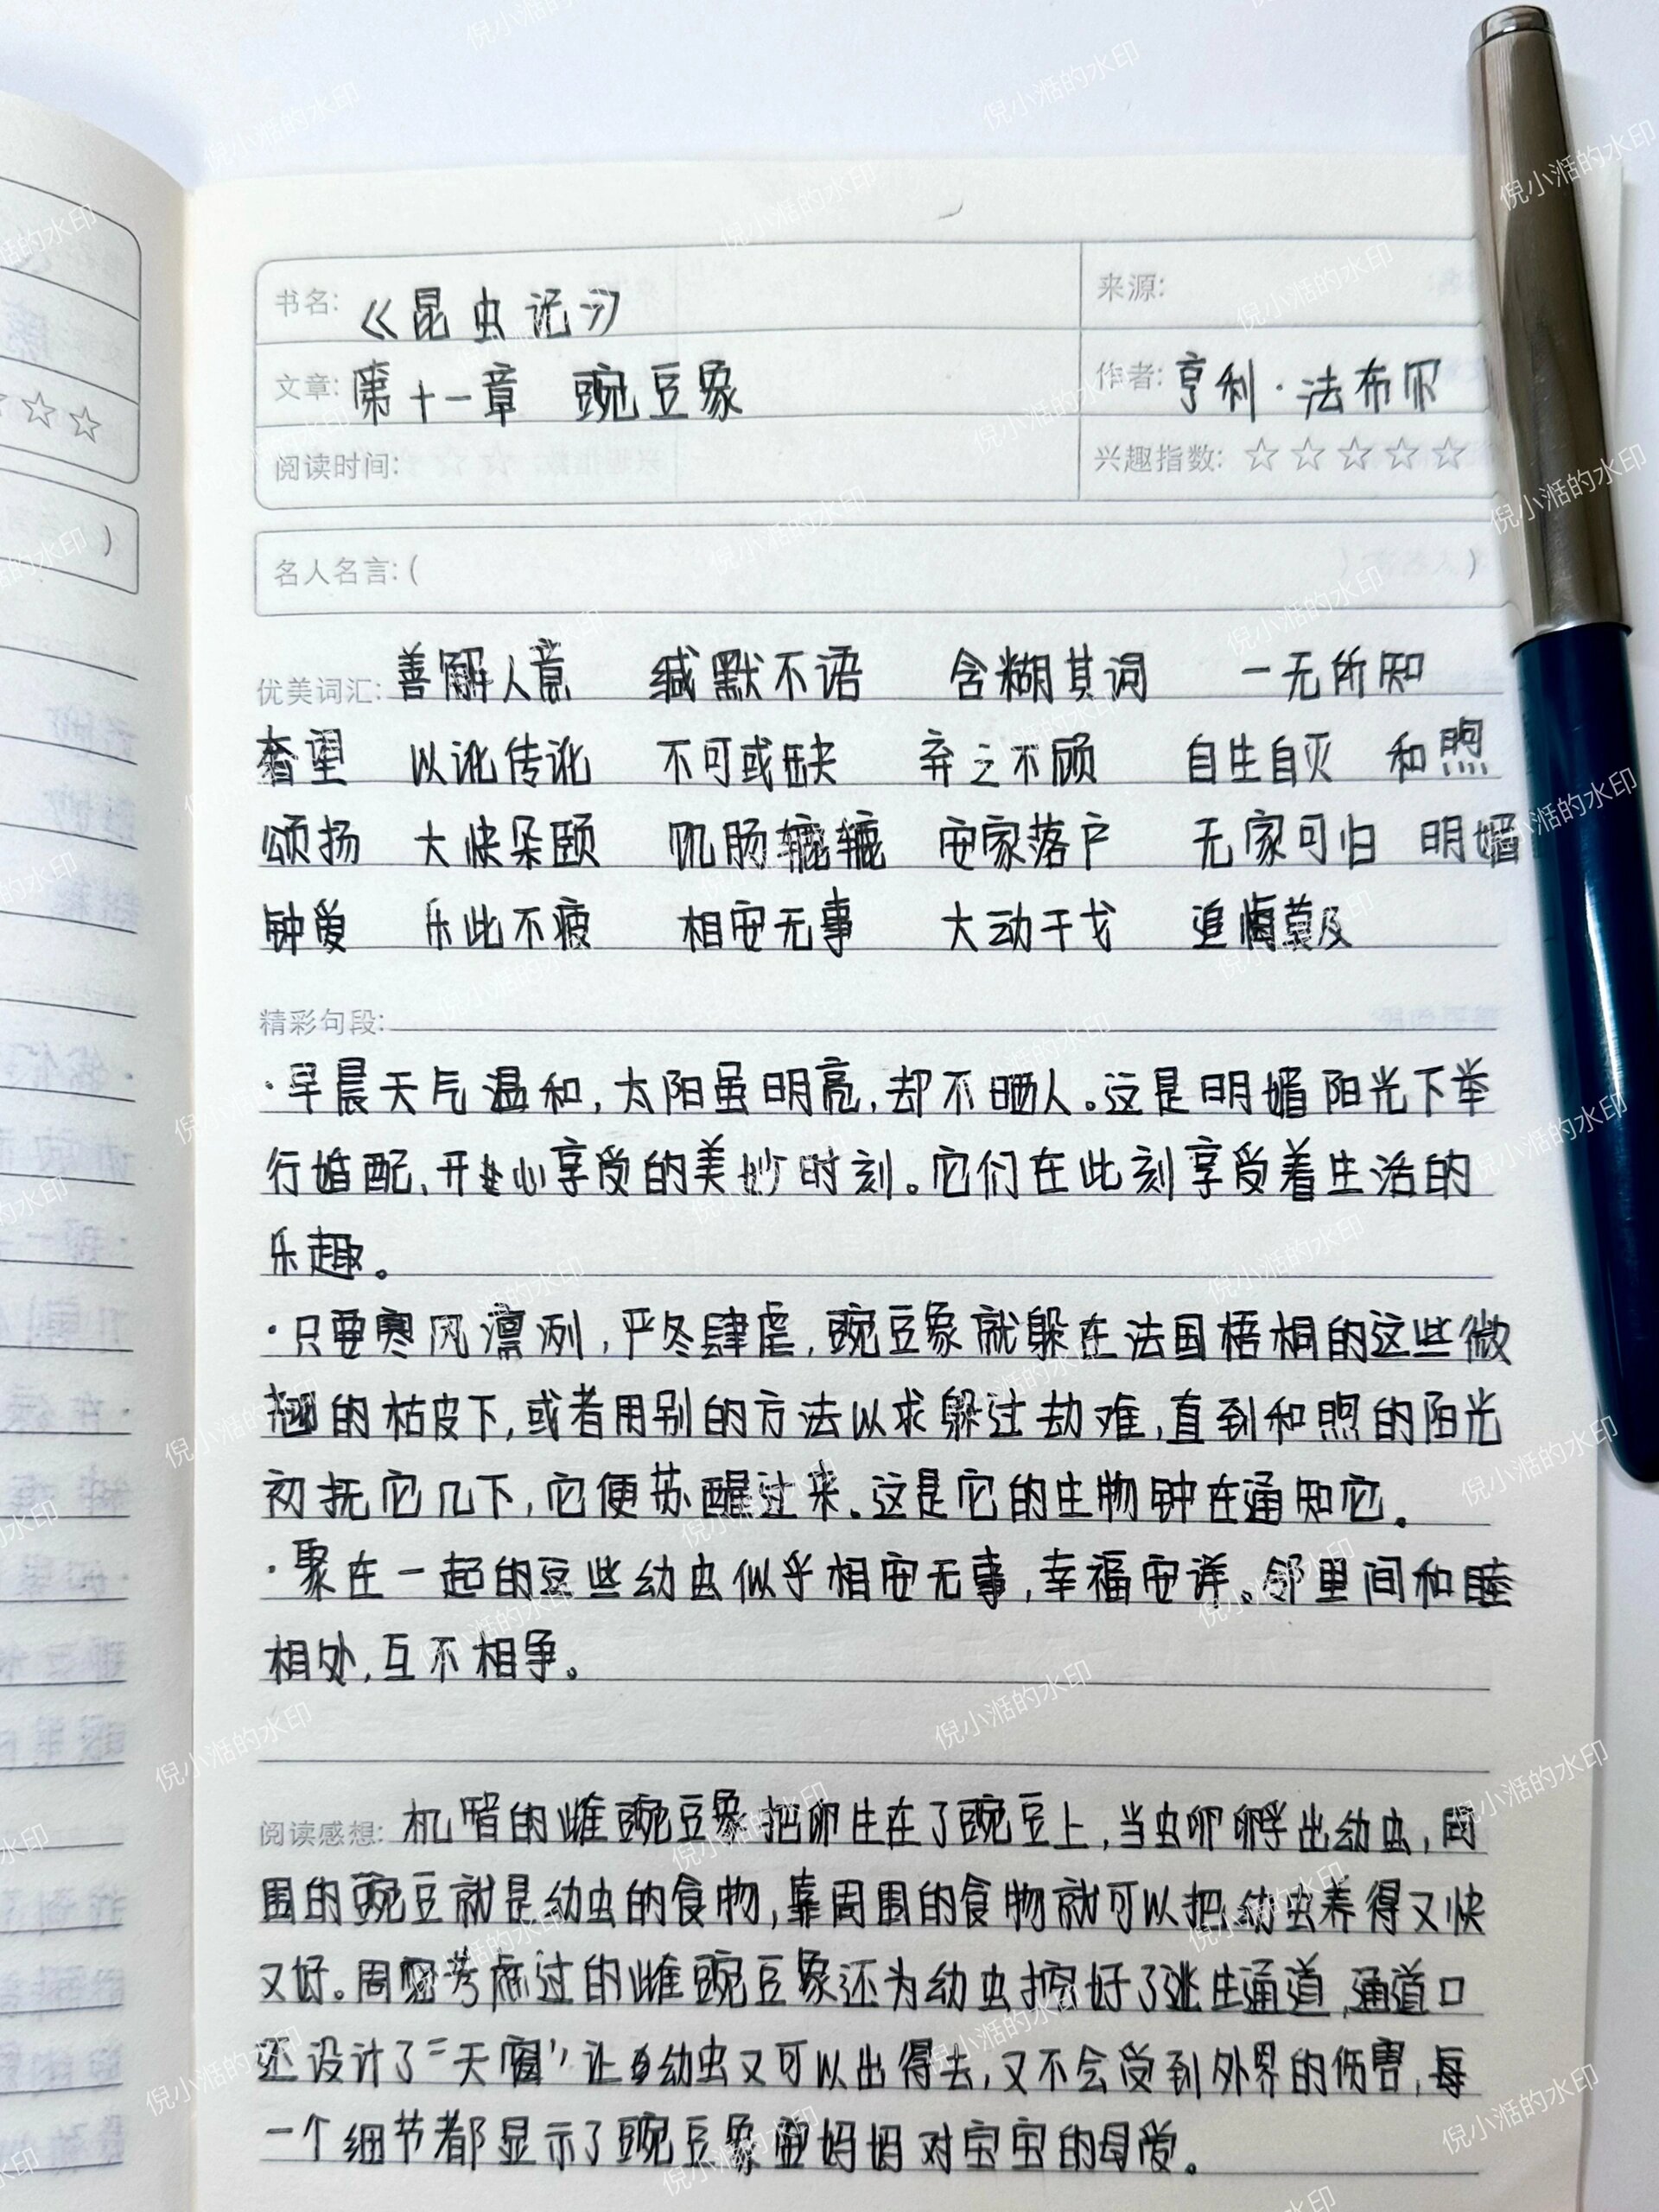 书名: 《昆虫记》 来源:
文章: 第十一章 豌豆象 作者: 亨利·法布尔
阅读时间: 兴趣指数: ☆☆☆☆☆
名人名言: ( )
优美词汇: 善解人意 缄默不语 含糊其词 一无所知
奢望 以讹传讹 不可或缺 弃之不顾 自生自灭 和煦
颂扬 大快朵颐 饥肠辘辘 安家落户 无家可归 明媚
钟爱 乐此不疲 相安无事 大动干戈 追悔莫及
精彩句段:
·早晨天气温和,太阳虽明亮,却不晒人。这是明媚阳光下举
行婚配、开心享受的美妙时刻。它们在此刻享受着生活的
乐趣。
·只要寒风凛冽,严冬肆虐,豌豆象就躲在法国梧桐的这些微
翘的枯皮下,或者用别的方法以求躲过劫难,直到和煦的阳光
初抚它几下,它便苏醒过来。这是它的生物钟在通知它。
·聚在一起的这些幼虫似乎相安无事,幸福安详。邻里间和睦
相处,互不相争。
阅读感想: 机智的雌豌豆象把卵生在了豌豆上,当虫卵孵出幼虫,周
围的豌豆就是幼虫的食物,靠周围的食物就可以把幼虫养得又快
又好。周密考虑过的雌豌豆象还为幼虫挖好了逃生通道,通道口
还设计了“天窗”让幼虫又可以出得去,又不会受到外界的伤害,每
一个细节都显示了豌豆象妈妈对宝宝的母爱。
倪小湉的水印